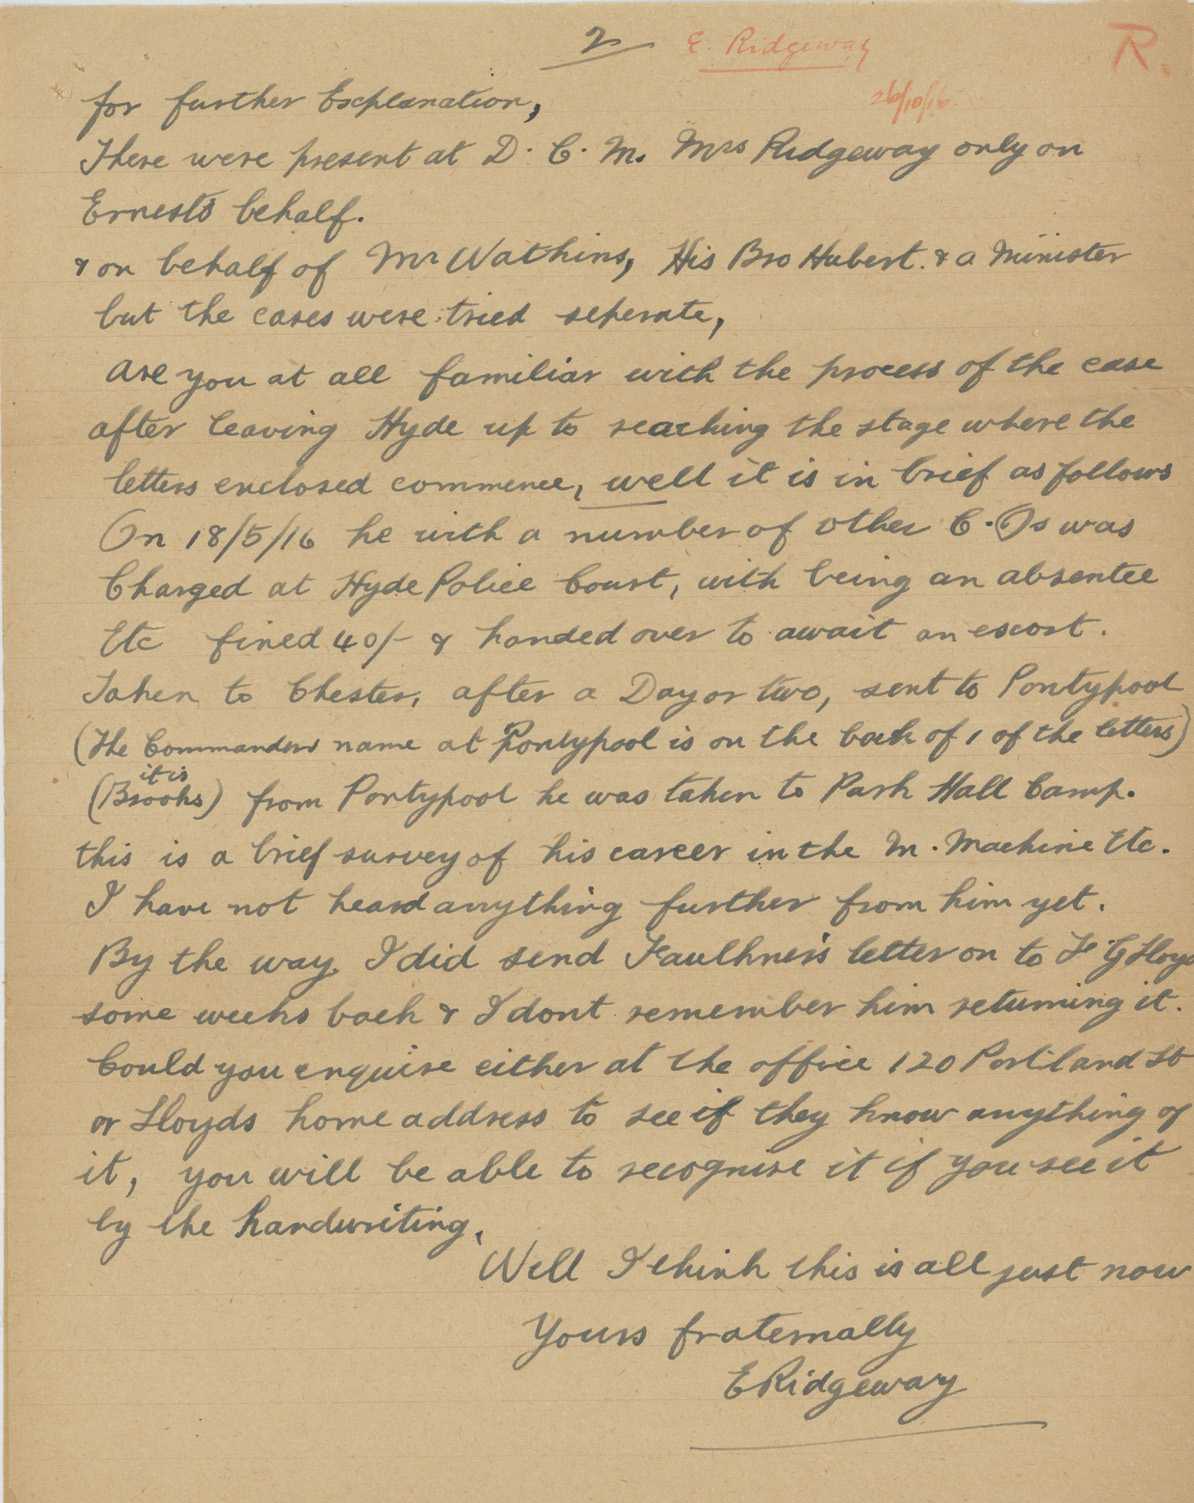 2 E. Ridgeway R.
26/10/16.
for further Explanation,
There were present at D. C. M. Mrs Ridgeway only on
Ernests behalf.
& on behalf of Mr Watkins, His Bro Hubert. & a Minister
but the cases were tried seperate,
Are you at all familiar with the process of the case
after leaving Hyde up to reaching the stage where the
letters enclosed commence, well it is in brief as follows
On 18/5/16 he with a number of other C.Os was
Charged at Hyde Police Court, with being an absentee
Etc fined 40/- & handed over to await an escort.
Taken to Chester, after a Day or two, sent to Pontypool
(The Commanders name at Pontypool is on the back of 1 of the letters)
it is
(Brooks) from Pontypool he was taken to Park Hall Camp.
this is a brief survey of his career in the M. Machine Etc.
I have not heard anything further from him yet.
By the way, I did send Faulkner's letter on to F G Lloyd
some weeks back & I dont remember him returning it.
Could you enquire either at the office 120 Portland St
or Lloyds home address to see if they know anything of
it, you will be able to recognise it if you see it
by the handwriting.
Well I think this is all just now
Yours fraternally
E Ridgeway